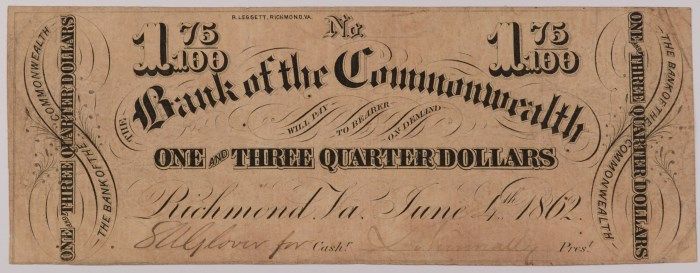 R. LEGGETT, RICHMOND, VA.
1 75/100 No. 1 75/100
THE Bank of the Commonwealth
WILL PAY TO BEARER ON DEMAND
ONE AND THREE QUARTER DOLLARS
Richmond Va. June 4th 1862
for Cash.r Pres.t
THE BANK OF THE COMMONWEALTH
ONE AND THREE QUARTER DOLLARS
ONE AND THREE QUARTER DOLLARS
THE BANK OF THE COMMONWEALTH